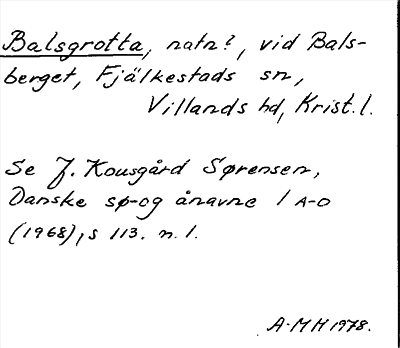 Balsgrotta, natn?, vid Bals-
berget, Fjälkestads sn,
Villands hd, Krist. l.
Se J. Kousgård Sørensen,
Danske sø-og ånavne 1 A-O
(1968), s 113. n. 1.
A-MH 1978.